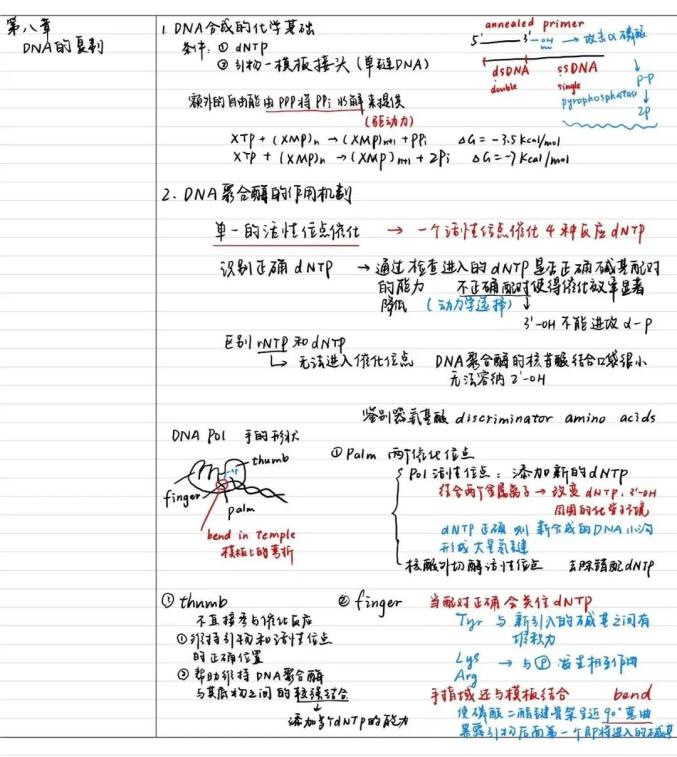 第八章
DNA的复制
1. DNA合成的化学基础
条件: ① dNTP
② 引物-模板接头 (单链DNA)
annealed primer
5' 3'-OH → 攻击α磷酸
dsDNA ssDNA
double single
P-P
pyrophosphatase
2P
额外的自由能由PPP将PPi水解来提供
(驱动力)
XTP + (XMP)n → (XMP)n+1 + PPi ΔG = -3.5 kcal/mol
XTP + (XMP)n → (XMP)n+1 + 2Pi ΔG = -7 kcal/mol
2. DNA聚合酶的作用机制
单一的活性位点催化 → 一个活性位点催化4种反应dNTP
识别正确dNTP → 通过检查进入的dNTP是否正确碱基配对
的能力 不正确配对使得催化效率显著
降低 (动力学选择)
3'-OH不能进攻α-P
区别rNTP和dNTP
无法进入催化位点 DNA聚合酶的核苷酸结合口袋很小
无法容纳2'-OH
鉴别器氨基酸 discriminator amino acids
DNA Pol 手的形状
thumb
finger
palm
bend in Temple
模板上的弯折
① Palm 两个催化位点
Pol活性位点: 添加新的dNTP
结合两个金属离子 → 改变dNTP、3'-OH
周围的化学环境
dNTP正确 则 新合成的DNA小沟
形成大量氢键
核酸外切酶活性位点 去除错配dNTP
③ thumb
不直接参与催化反应
① 维持引物和活性位点
的正确位置
② 帮助维持DNA聚合酶
与其底物之间的较强结合
添加多个dNTP的能力
② finger 当配对正确会关住dNTP
Tyr 与新引入的碱基之间有
堆积力
Lys
Arg → 与Ⓟ发生相互作用
手指域还与模板结合 bend
使磷酸二酯键骨架呈近90°弯曲
暴露引物后面第一个即将进入的碱基